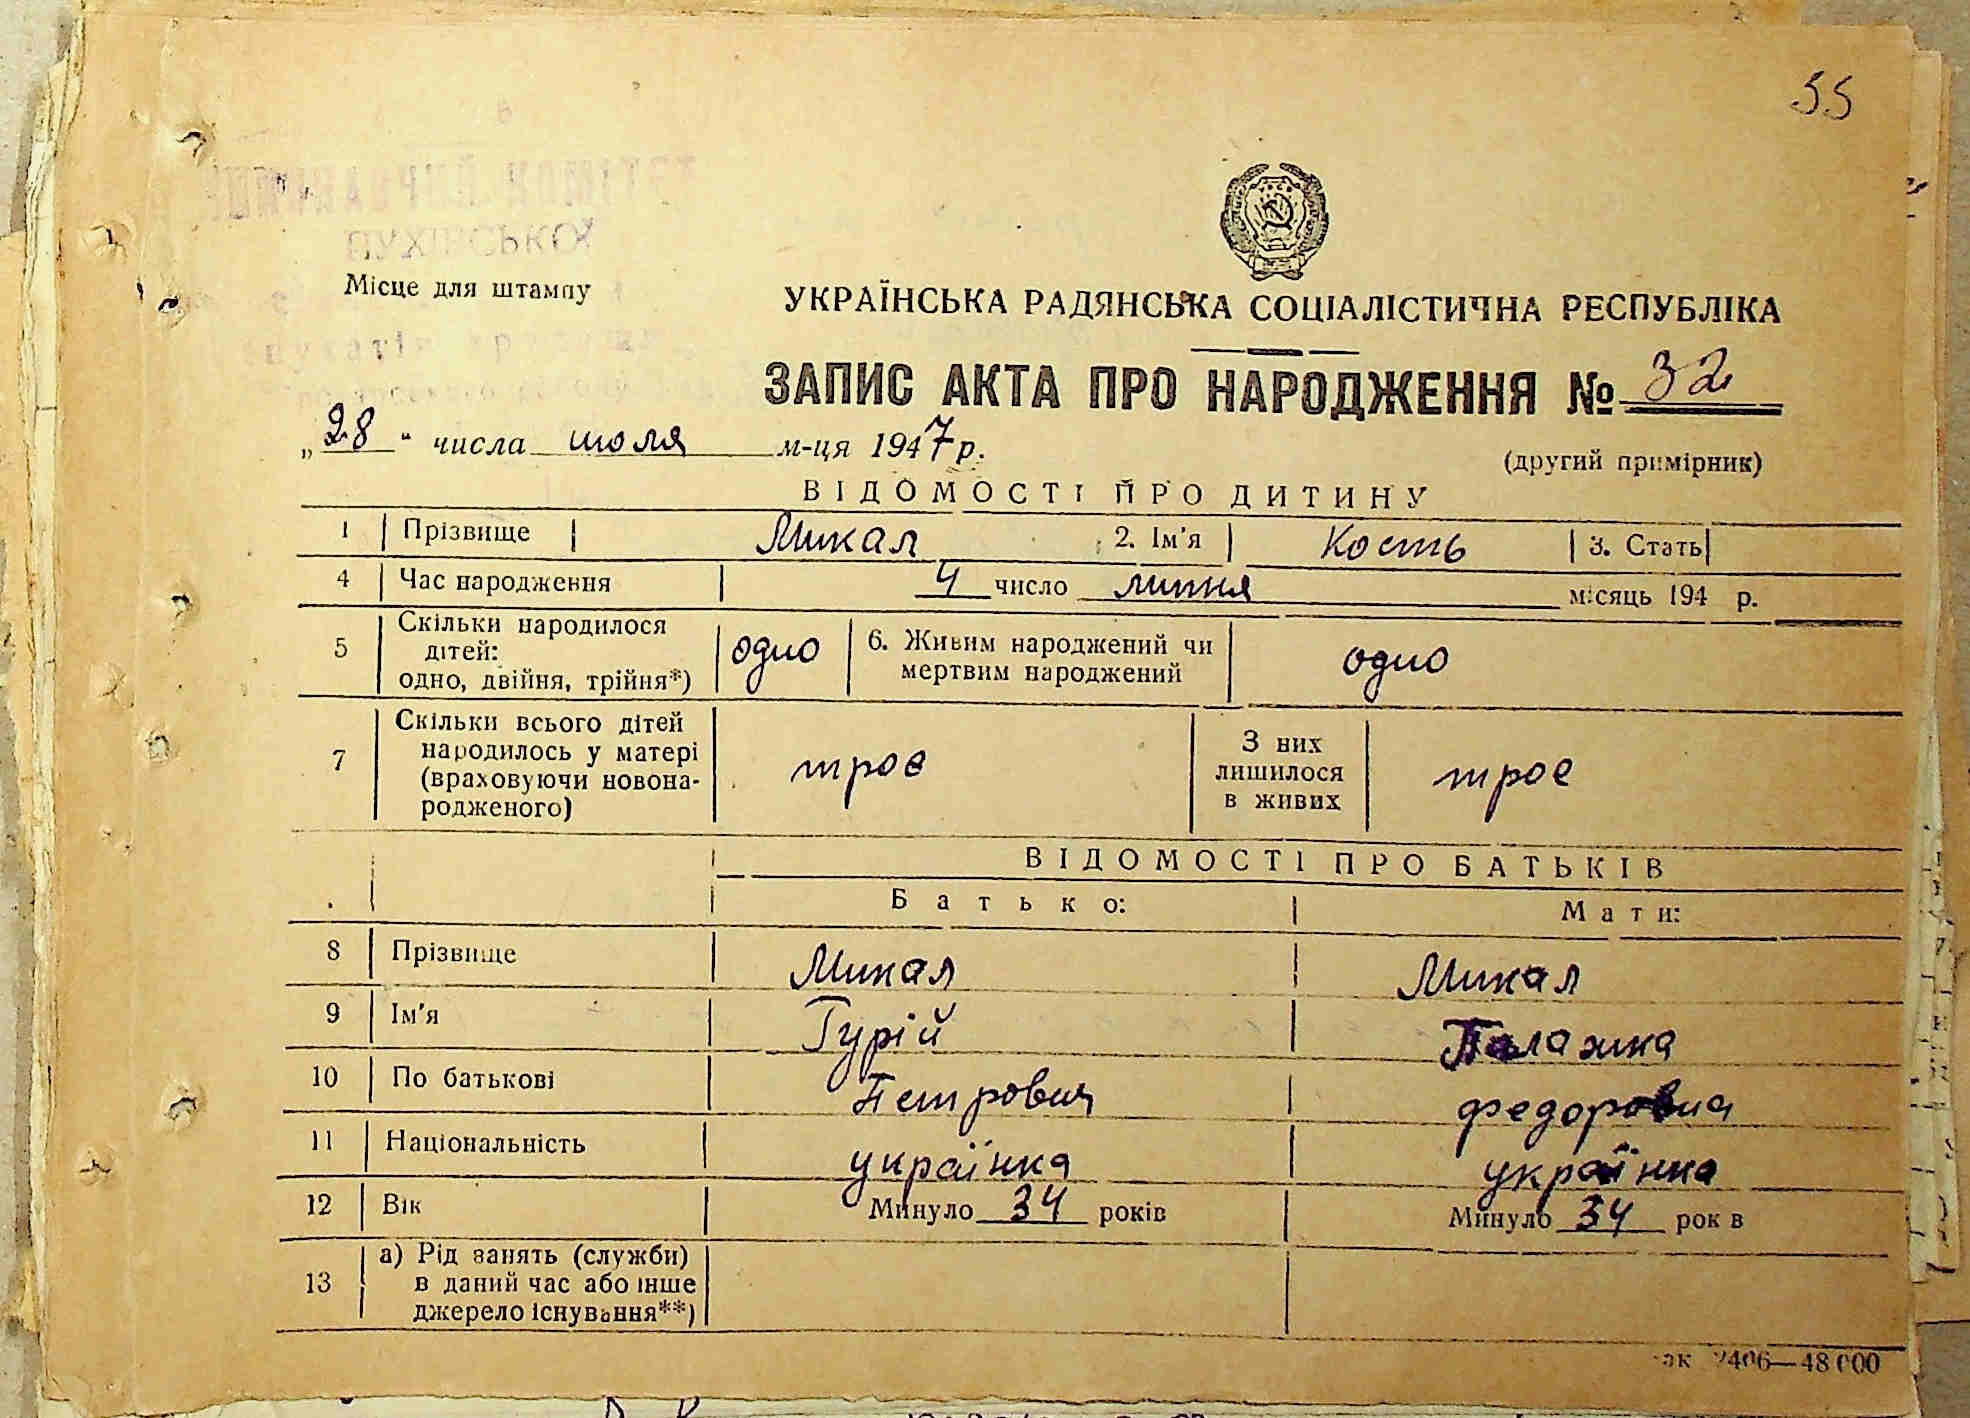 55
ПУХІВСЬКОЇ
Місце для штампу
УКРАЇНСЬКА РАДЯНСЬКА СОЦІАЛІСТИЧНА РЕСПУБЛІКА
ЗАПИС АКТА ПРО НАРОДЖЕННЯ № 32
„28“ числа июля м-ця 1947 р.
(другий примірник)
ВІДОМОСТІ ПРО ДИТИНУ
1 Прізвище Микал 2. Ім'я Кость 3. Стать
4 Час народження 4 число липня місяць 194 р.
5 Скільки народилося дітей: одно, двійня, трійня*) одно 6. Живим народжений чи мертвим народжений одно
7 Скільки всього дітей народилось у матері (враховуючи новонародженого) троє З них лишилося в живих троє
ВІДОМОСТІ ПРО БАТЬКІВ
Батько: Мати:
8 Прізвище Микал Микал
9 Ім'я Гурій Палажка
10 По батькові Петрович Федоровна
11 Національність українка українка
12 Вік Минуло 34 років Минуло 34 рок в
13 а) Рід занять (служби) в даний час або інше джерело існування**)
2406—48 000